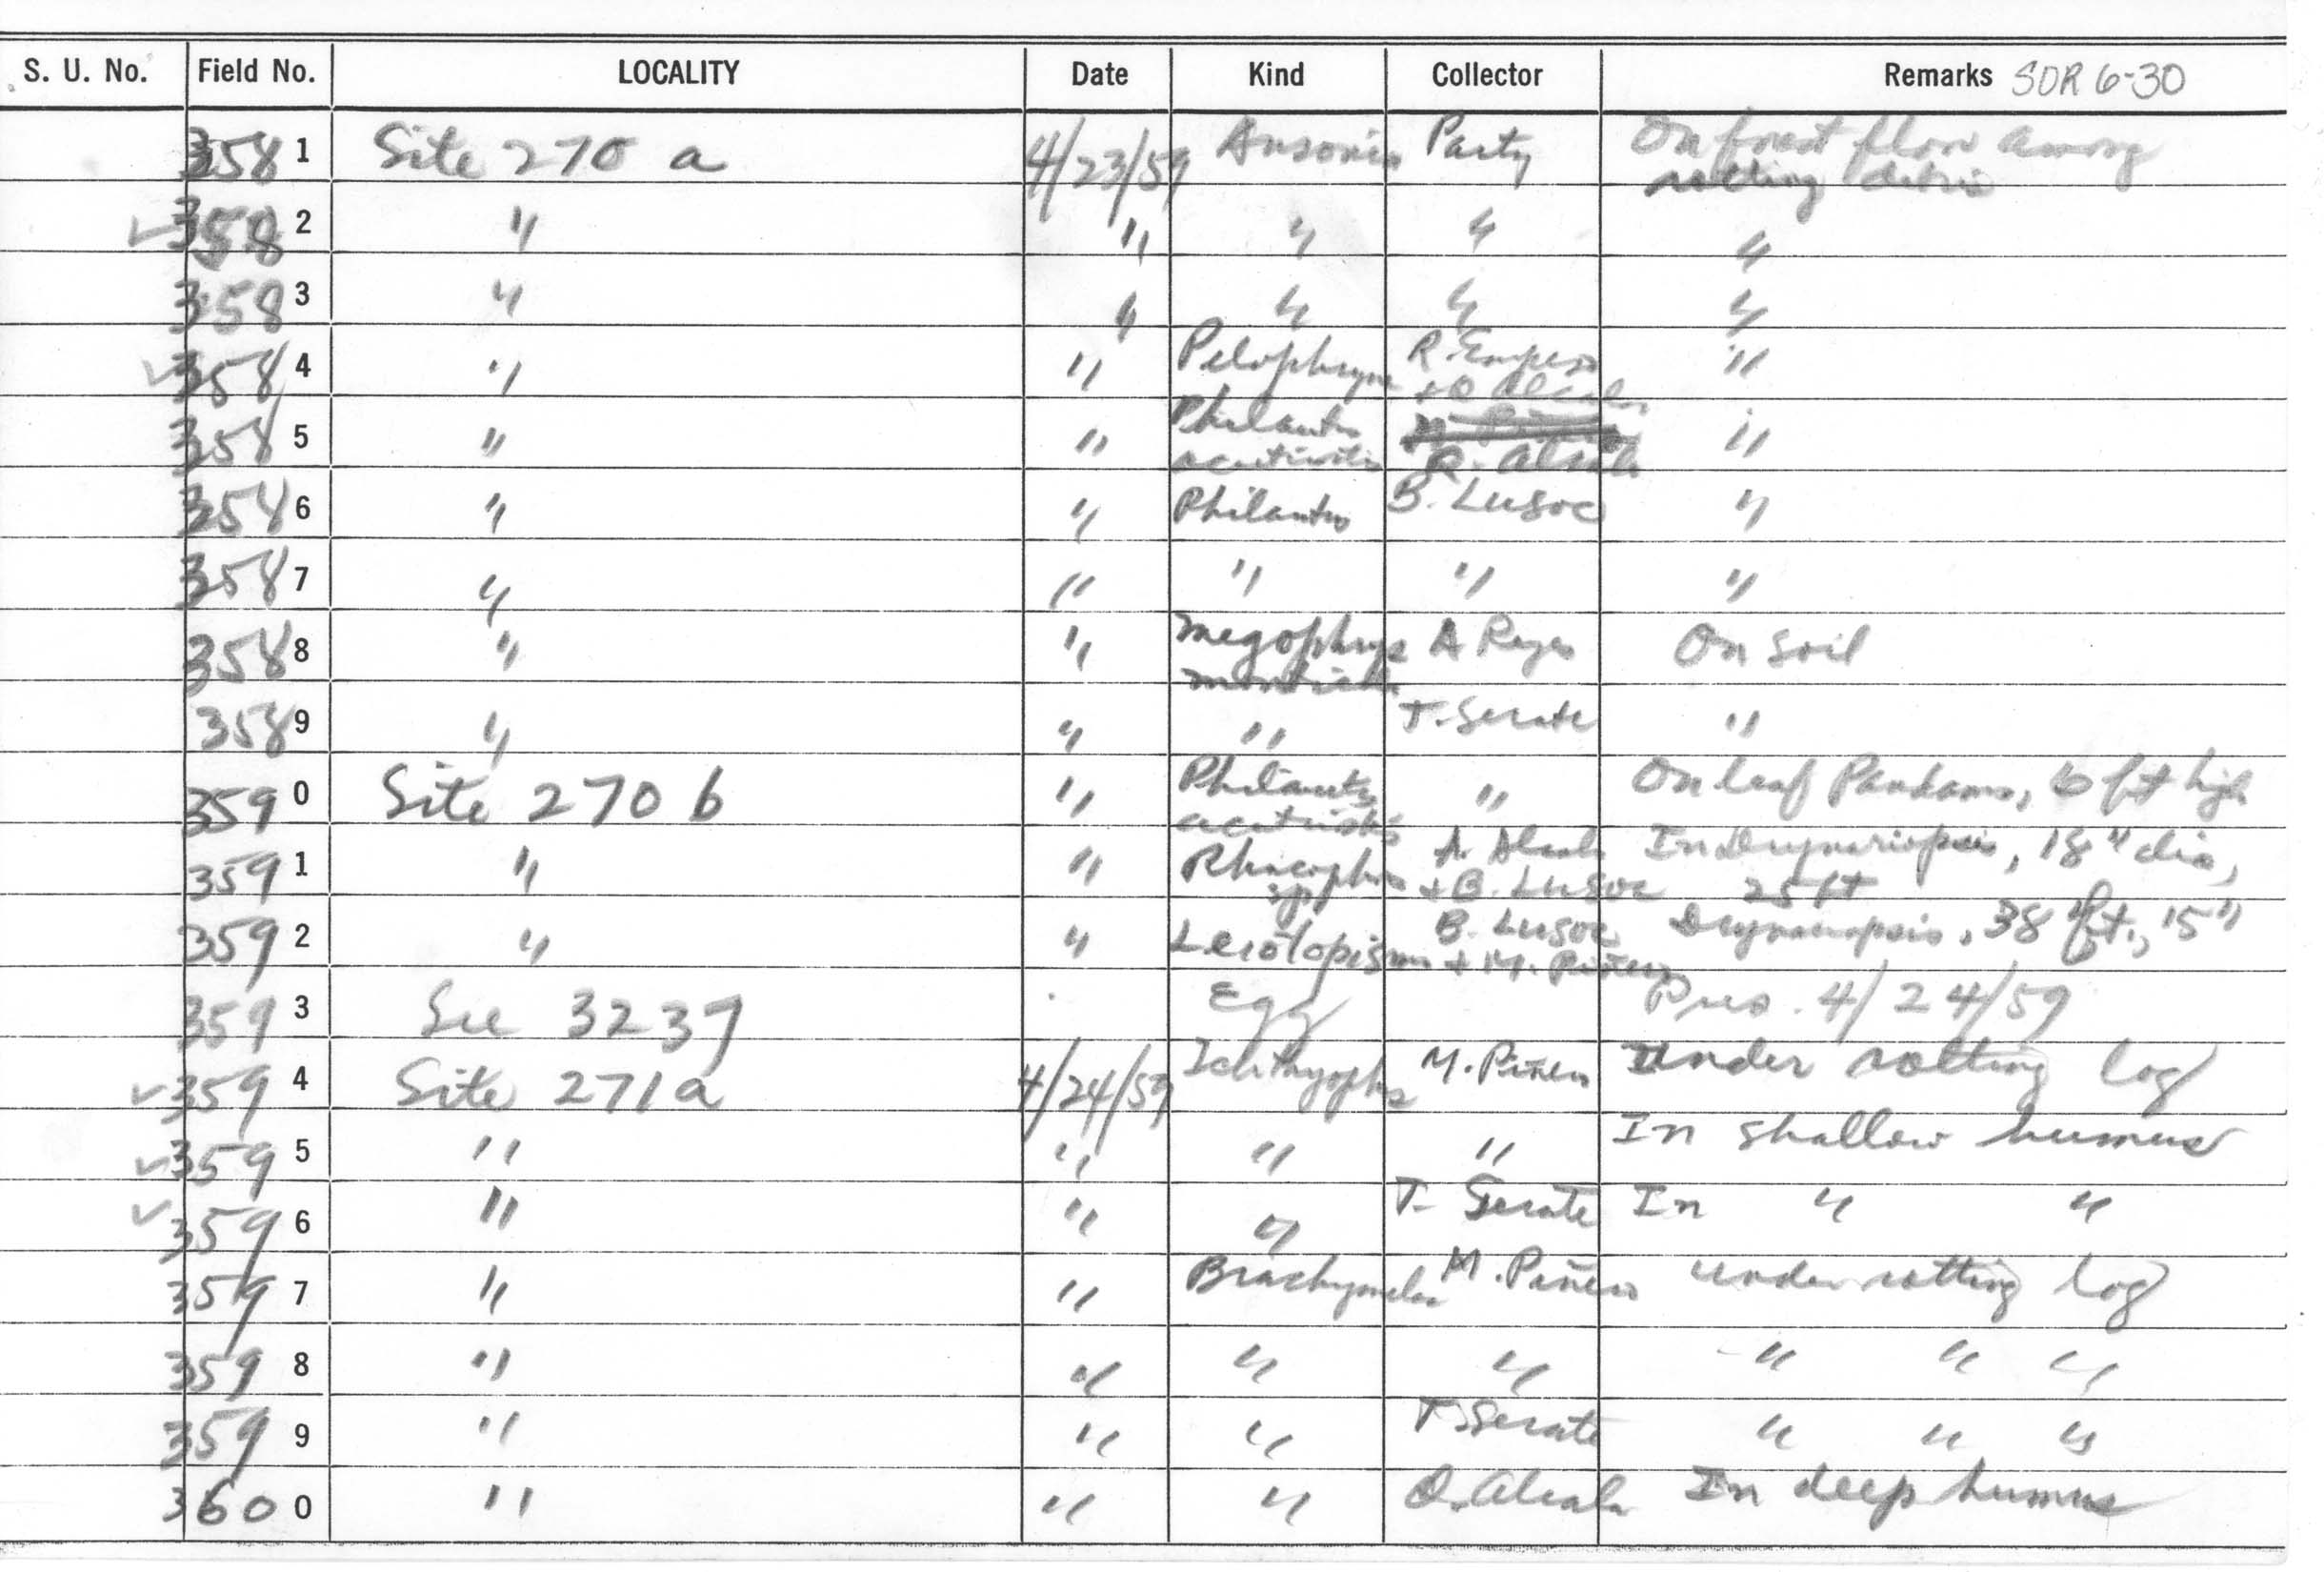 S. U. No. Field No. LOCALITY Date Kind Collector Remarks SDR 6-30
3581 Site 270 a 4/23/59 Ansonia Party On forest floor among
rotting debris
3582 " " " " "
3583 " " " " "
3584 " " Pelophryne R. Empeso "
+ Q Alcala
3585 " " Philautus "
acutirostris Q. Alcala
3586 " " Philautus B. Lusoc "
3587 " " " " "
3588 " " Megophrys A Reyes On soil
monticola
3589 " " " T. Serate "
3590 Site 270 b " Philautus " On leaf Pandanus, 6 ft high
acutirostris
3591 " " Rhacophorus A. Alcala In Drynariopsis, 18" dia,
sp + B. Lusoc 25 ft
3592 " " Leiolopisma B. Lusoc Drynariopsis, 38 ft., 15"
+ M. Piñero
3593 See 3237 Egg Pres. 4/24/59
3594 Site 271a 4/24/59 Ichthyophis M. Piñero Under rotting log
3595 " " " " In shallow humus
3596 " " " T. Serate In " "
3597 " " Brachymeles M. Piñero under rotting log
3598 " " " " " " "
3599 " " " T. Serate " " "
3600 " " " Q. Alcala In deep humus